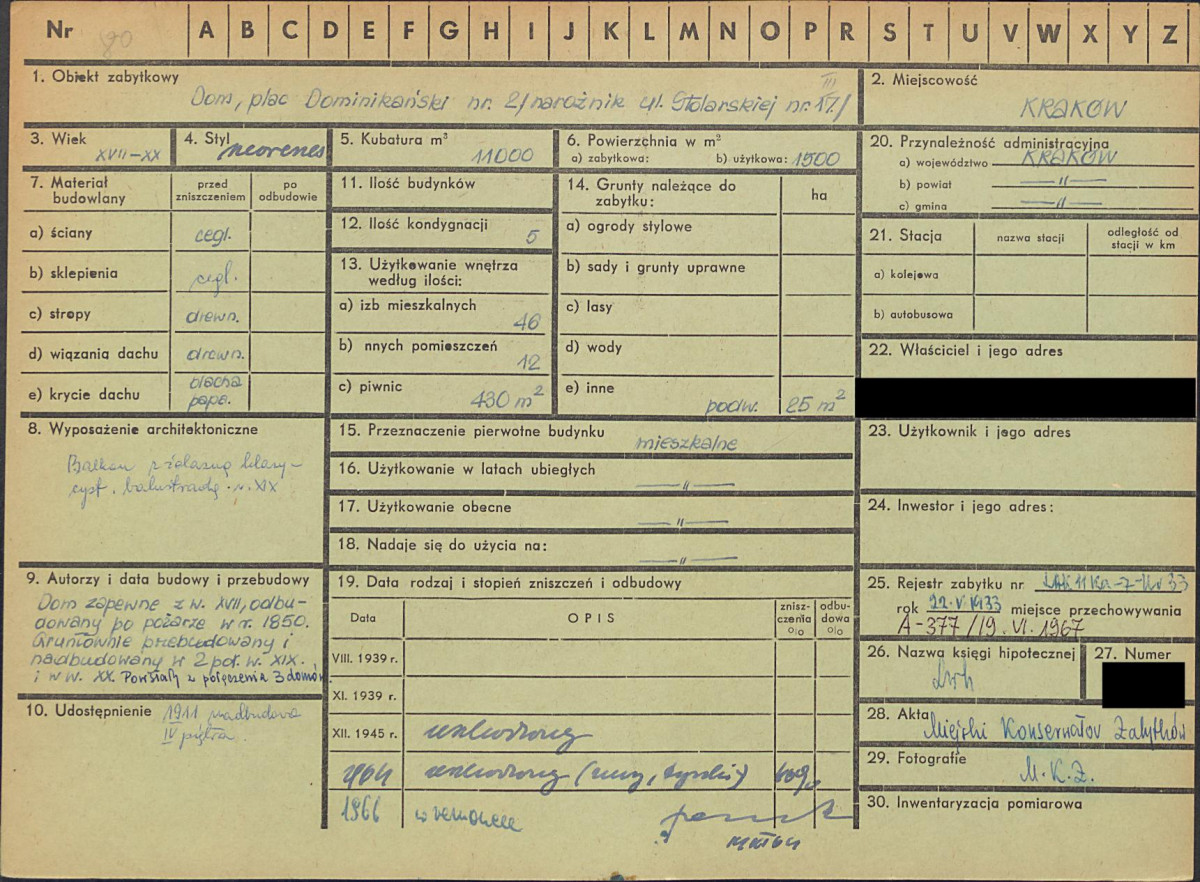 Nr 80 A B C D E F G H I J K L M N O P R S T U V W X Y Z
1. Obiekt zabytkowy
Dom, plac Dominikański nr. 2/narożnik ul. Stolarskiej nr. 17/
III
2. Miejscowość
KRAKÓW
3. Wiek
XVII-XX
4. Styl
neorenes
5. Kubatura m³
11000
6. Powierzchnia w m²
a) zabytkowa: b) użytkowa: 1500
20. Przynależność administracyjna
a) województwo KRAKÓW
b) powiat —"—
c) gmina —"—
7. Materiał budowlany
przed zniszczeniem
po odbudowie
a) ściany cegl.
b) sklepienia cegl.
c) stropy drewn.
d) wiązania dachu drewn.
e) krycie dachu blacha
papa.
11. Ilość budynków
12. Ilość kondygnacji 5
13. Użytkowanie wnętrza
według ilości:
a) izb mieszkalnych
46
b) nnych pomieszczeń
12
c) piwnic 430 m²
14. Grunty należące do
zabytku:
ha
a) ogrody stylowe
b) sady i grunty uprawne
c) lasy
d) wody
e) inne podw. 25 m²
21. Stacja
nazwa stacji
odległość od
stacji w km
a) kolejowa
b) autobusowa
22. Właściciel i jego adres
8. Wyposażenie architektoniczne
Balkon z żelazną klasy-
cyst. balustradą. w. XIX
15. Przeznaczenie pierwotne budynku mieszkalne
16. Użytkowanie w latach ubiegłych —"—
17. Użytkowanie obecne —"—
18. Nadaje się do użycia na: —"—
23. Użytkownik i jego adres
24. Inwestor i jego adres:
9. Autorzy i data budowy i przebudowy
Dom zapewne z w. XVII, odbu-
dowany po pożarze w r. 1850.
Gruntownie przebudowany i
nadbudowany w 2 poł. w. XIX.
i w w. XX. Powstały z połączenia 3 domów
10. Udostępnienie 1911 nadbudowa
IV piętra.
19. Data rodzaj i stopień zniszczeń i odbudowy
Data
OPIS
znisz-
czenia
%
odbu-
dowa
%
VIII. 1939 r.
XI. 1939 r.
XII. 1945 r. uszkodzony
1964 uszkodzony
1966 w remoncie
25. Rejestr zabytku nr
rok 22.V.1933 miejsce przechowywania
A-377/19.VI.1967
26. Nazwa księgi hipotecznej
Lwh
27. Numer
28. Akta Miejski Konserwator Zabytków
29. Fotografie M.K.Z.
30. Inwentaryzacja pomiarowa